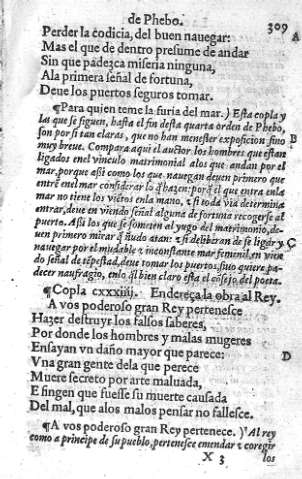 de Phebo. 309
Perder la codicia, del buen nauegar:
Mas el que de dentro presume de andar
Sin que padezca miseria ninguna,
Ala primera señal de fortuna,
Deue los puertos seguros tomar.
¶Para quien teme la furia del mar.) Esta copla y
las que se siguen, hasta el fin desta quarta orden de Phebo,
son por si tan claras, que no han menester exposicion sino
muy breue. Compara aqui el auctor los hombres que estan
ligados enel vinculo matrimonial alos que andan por el
mar, porque assi como los que nauegan deuen primero que
entrē enel mar considerar lo q̃ hazen: porq̃ el que entra enla
mar no tiene los viētos enla mano, & si toda via determina
entrar, deue en viendo señal alguna de fortuna recogerse al
puerto. Assi los que se someten al yugo del matrimonio, de-
uen primero mirar q̃ ñudo atan: & si deliberan de se ligar y
nauegar por el mudable & inconstante mar femenil, en vien
do señal de tēpestad, deue tomar los puertos, sino quiere pa-
decer naufragio, enlo q̃l bien claro esta el consejo del poeta.
¶Copla cxxxiiij. Endereça la obra al Rey.
A vos poderoso gran Rey pertenesce
Hazer destruyr los falsos saberes,
Por donde los hombres y malas mugeres
Ensayan vn daño mayor que parece:
Vna gran gente dela que perece
Muere secreto por arte maluada,
E fingen que fuesse su muerte causada
Del mal, que alos malos pensar no fallesce.
¶A vos poderoso gran Rey pertenece.) Al rey
como a principe de su pueblo, pertenesce emendar & coregir
X 3 los
A
B
C
D